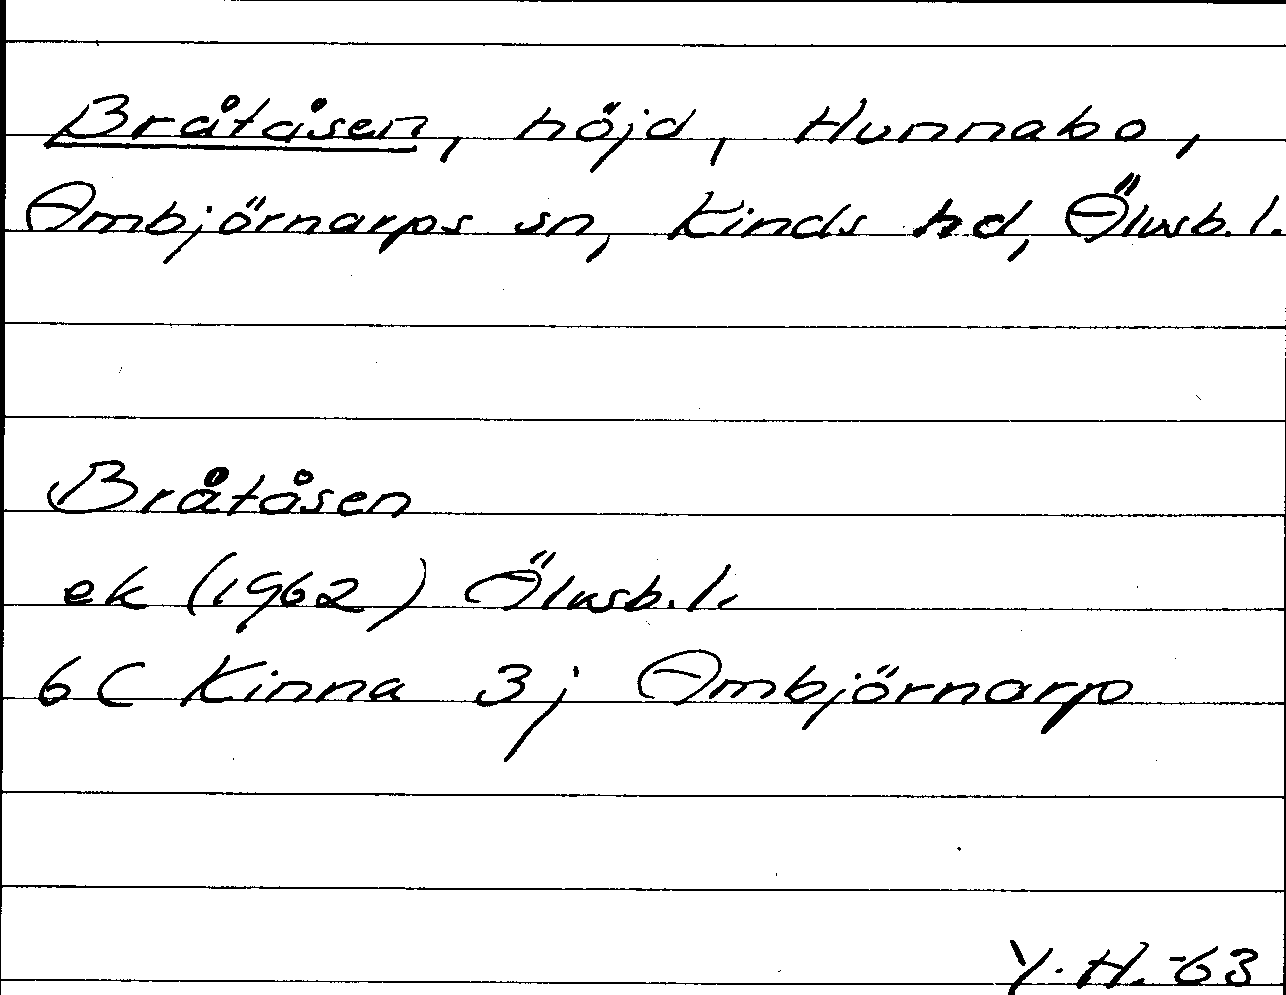 Bråtåsen, höjd, Hunnabo,
Ambjörnarps sn, Kinds hd, Älvsb.l.
Bråtåsen
ek (1962) Älvsb.l.
6C Kinna 3j Ambjörnarp
Y.H.-63